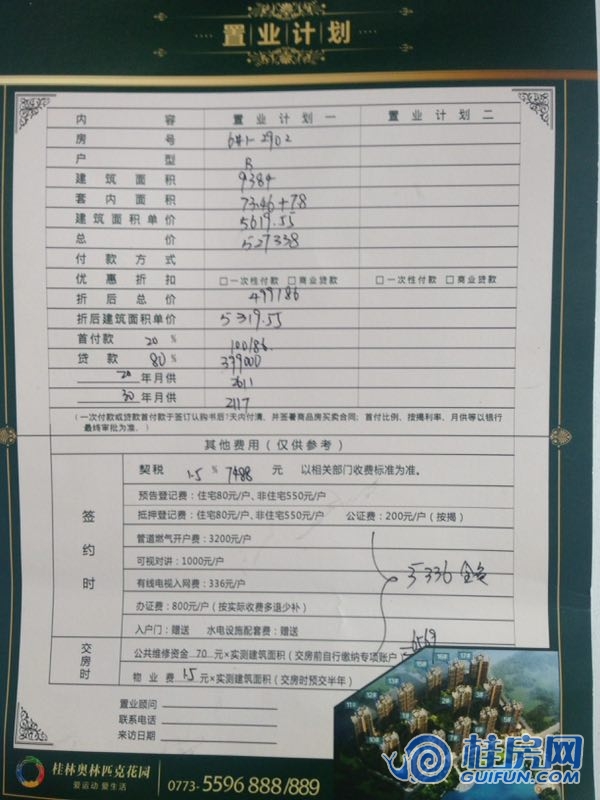 置业计划
内容 置业计划一 置业计划二
房号 6#1-2902
户型 B
建筑面积 93.84
套内面积 73.46+7.8
建筑面积单价 5619.55
总价 527338
付款方式
优惠折扣 □一次性付款 □商业贷款 □一次性付款 □商业贷款
折后总价 499186
折后建筑面积单价 5319.55
首付款 20 % 100186.
贷款 80 % 399000
20 年月供 2611
30 年月供 2117
(一次付款或贷款首付款于签订认购书后7天内付清，并签署商品房买卖合同；首付比例、按揭利率、月供等以银行
最终审批为准。)
其他费用（仅供参考）
签约时
契税 1.5 % 7488 元 以相关部门收费标准为准。
预告登记费：住宅80元/户、非住宅550元/户
抵押登记费：住宅80元/户、非住宅550元/户 公证费：200元/户（按揭）
管道燃气开户费：3200元/户
可视对讲：1000元/户
有线电视入网费：336元/户
5336
办证费：800元/户（按实际收费多退少补）
入户门：赠送 水电设施配套费：赠送
交房时
公共维修资金 70 元×实测建筑面积（交房前自行缴纳专项账户 6569
物业费 1.5 元×实测建筑面积（交房时预交半年）
置业顾问：
联系电话：
来访日期：
11# 15# 16# 17#
桂林奥林匹克花园
爱运动 爱生活
0773-5596 888/889
桂房网
GUIFUN.COM